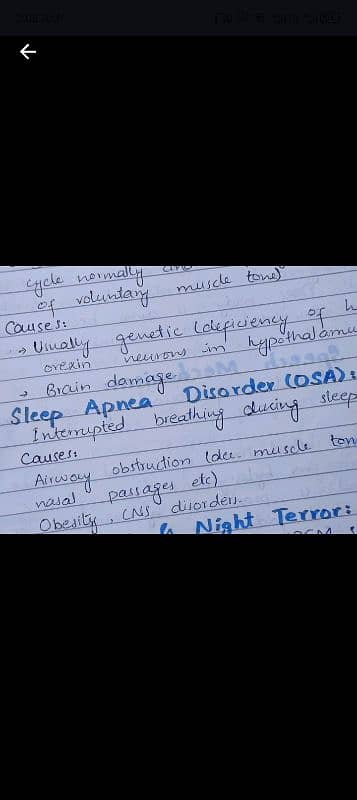 cycle normally
of voluntary muscle tone)
Causes:
→ Usually genetic (deficiency of
orexin neurons in hypothalamu
→ Brain damage.
Sleep Apnea Disorder (OSA):
Interrupted breathing during sleep
Causes:
Airway obstruction (dec. muscle ton
nasal passages etc)
Obesity, CNS disorders.
Night Terror: